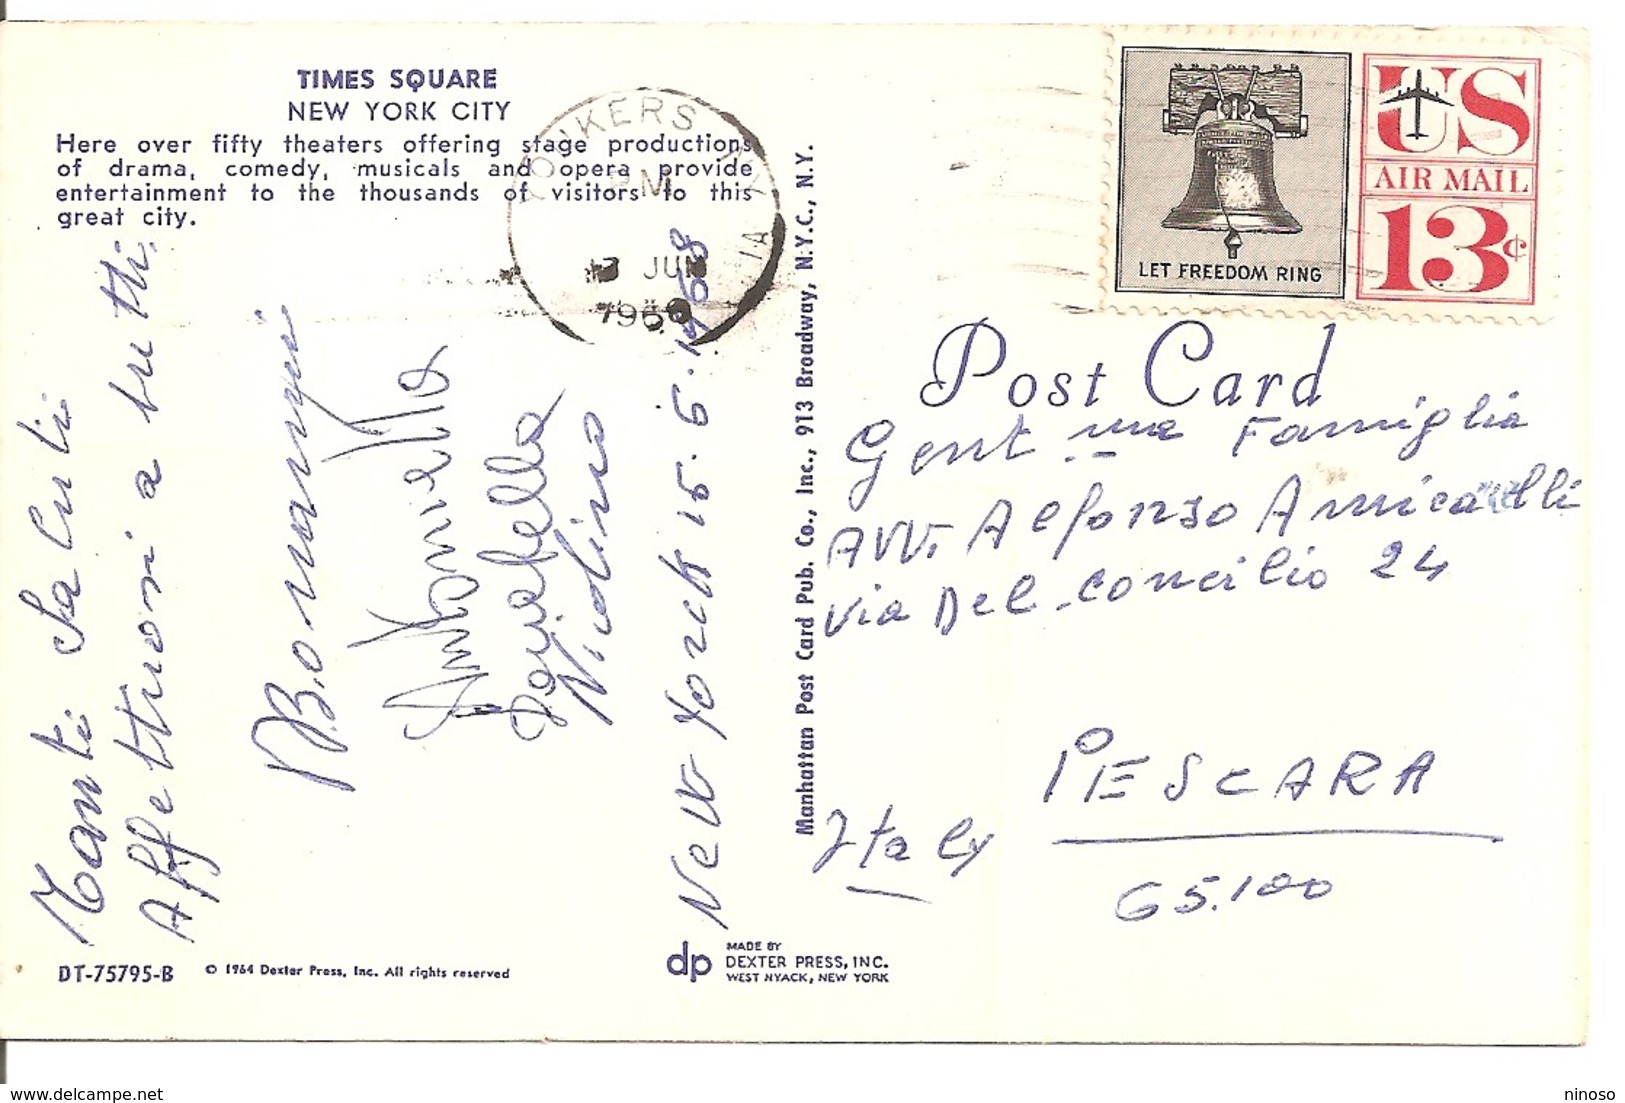 TIMES SQUARE
NEW YORK CITY
Here over fifty theaters offering stage productions
of drama, comedy, musicals and opera provide
entertainment to the thousands of visitors to this
great city.
YONKERS N.Y.
PM
JUN
196
LET FREEDOM RING
US
AIR MAIL
13¢
Post Card
Gent.ma Famiglia
AVV. Alfonso Amicarelli
via Del Concilio 24
PESCARA
Italy
65.100
Tanti Saluti
Affettuosi a tutti
Antonietta
Nicolino
New Yorck 15.6.1968
Manhattan Post Card Pub. Co., Inc., 913 Broadway, N.Y.C., N.Y.
DT-75795-B
© 1964 Dexter Press, Inc. All rights reserved
dp
MADE BY
DEXTER PRESS, INC.
WEST NYACK, NEW YORK
delcampe.net
ninoso